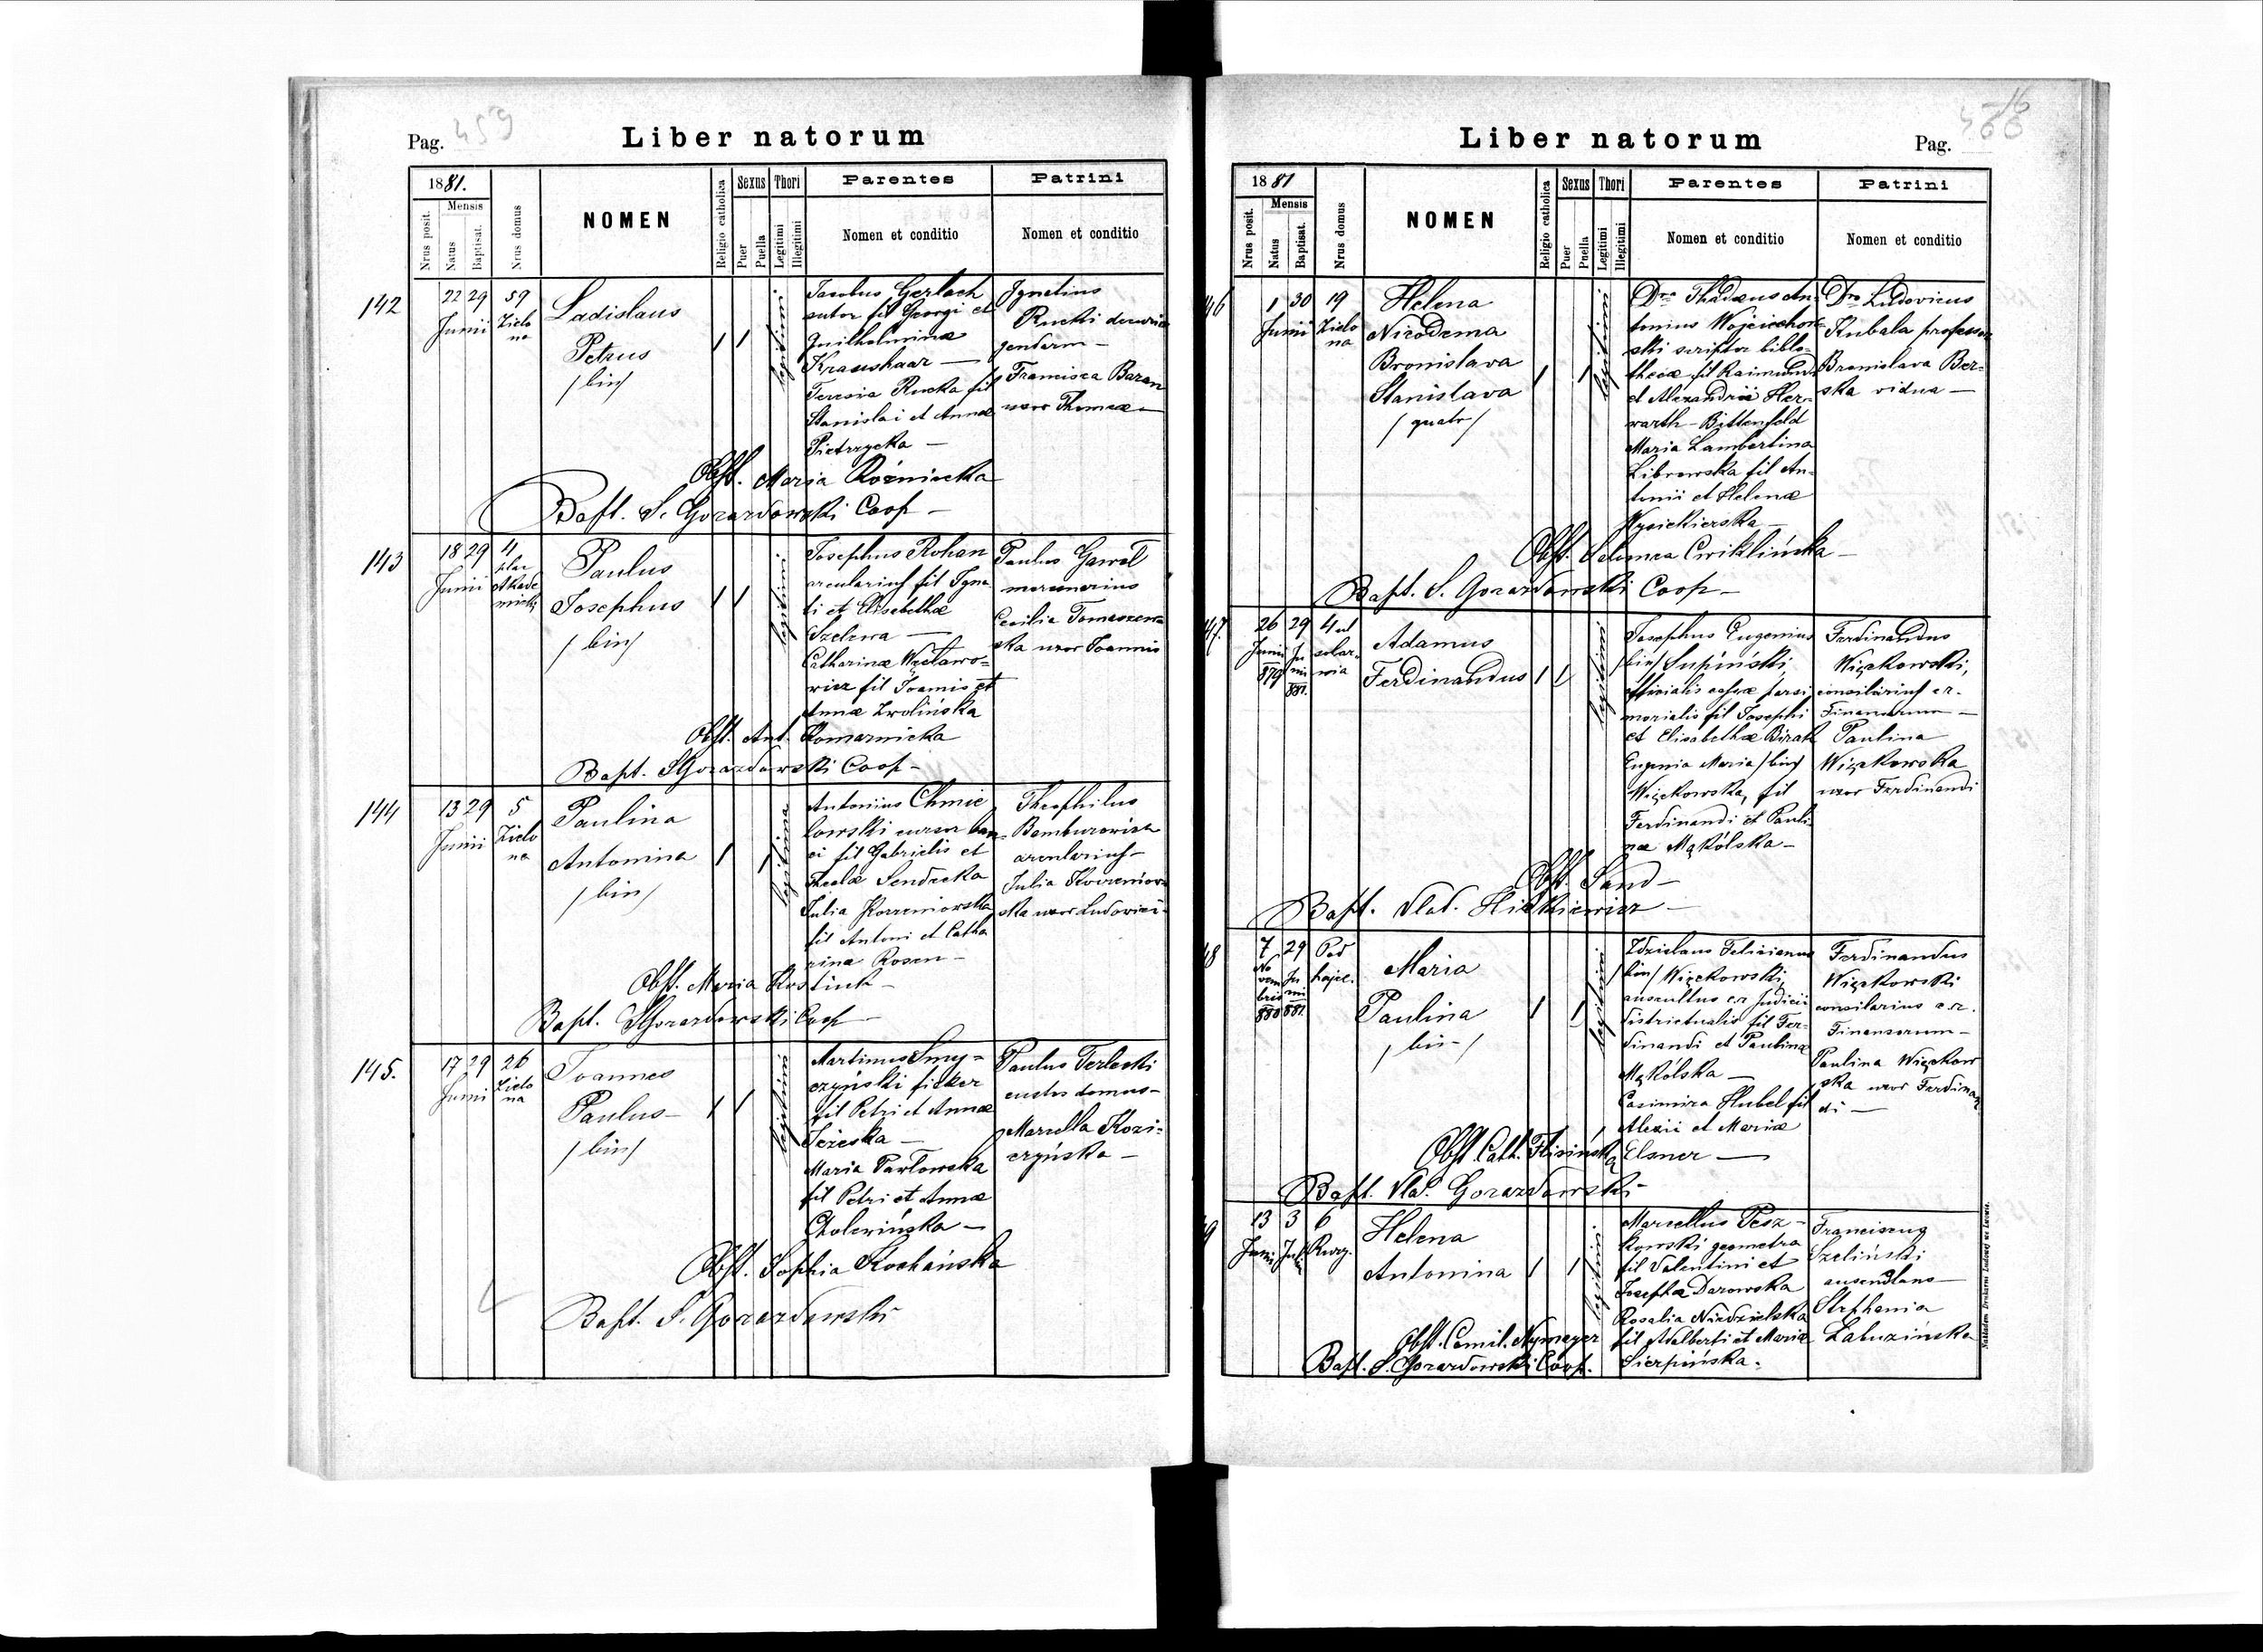 Pag. 459
Liber natorum
1881.
Mensis
Nrus posit.
Natus
Baptisat.
Nrus domus
NOMEN
Religio catholica
Sexus
Puer
Puella
Thori
Legitimi
Illegitimi
Parentes
Nomen et conditio
Patrini
Nomen et conditio
142
22 29
Junii
59
Zielo
na
Ladislaus
Petrus
/bin/
legitimi
Jacobus Gerlach
sutor fil Georgi et
Guilhelminæ
Kraushaar —
Teresia Rucka fil
Stanislai et Annæ
Pietrzycka —
Ignatius
Rucki
gendarm —
Francisca Baran
uxor Thomæ —
Obst. Maria Roźniecka
Bapt. S. Gorazdowski Coop —
143
18 29
Junii
4
plac
Akade
micki
Paulus
Josephus
/bin/
legitimi
Josephus Rohan
arcularius fil Igna
ti et Elisabethæ
Szelewa —
Catharina Węcławo=
wicz fil Joannis et
Annæ Zwolińska
Paulus Gaweł
mercenarius
Cecilia Tomaszew
ska uxor Joannis
Obst. Ant. Komarnicka
Bapt. SGorazdowski Coop —
144
13 29
Junii
5
Zielo
na
Paulina
Antonina
/bin/
legitima
Antonius Chmie
lowski cursor ban=
ci fil Gabrielis et
Theclæ Sendecka
Julia Korzeniowska
fil Antoni et Catha
rina Rosen —
Theophilus
Bemburowicz
arcularius —
Julia Korzeniow
ska uxor Ludovici —
Obst. Maria Kostiuk —
Bapt. SGorazdowski Coop —
145.
17 29
Junii
26
Zielo
na
Joannes
Paulus —
/bin/
legitimi
Martinus Smy=
czyński fiaker
fil Petri et Annæ
Jeżeska —
Maria Pawłowska
fil Petri et Annæ
Cholewińska —
Paulus Terlecki
custos domus —
Marcella Kozi=
czyńska —
Obst. Sophia Kochańska
Bapt. S. Gorazdowski
Liber natorum
Pag.
1881
Mensis
Nrus posit.
Natus
Baptisat.
Nrus domus
NOMEN
Religio catholica
Sexus
Puer
Puella
Thori
Legitimi
Illegitimi
Parentes
Nomen et conditio
Patrini
Nomen et conditio
46
1 30
Junii
19
Zielo
na
Helena
Nicodema
Bronislava
Stanislava
/quatr/
legitimi
Drs Thadæus An=
tonius Wojciechow=
ski scriptor biblio=
thecæ fil Raimundi
et Alexandræ Her=
warth-Bittenfeld
Maria Lambertina
Librowska fil An=
tonii et Helenæ
Wysiekierska —
Drs Ludovicus
Kubala professor
Bronislava Ber=
ska vidua —
Obst. Salomea Cwiklińska —
Bapt. S. Gorazdowski Coop —
47.
26
Junii
879
29
Ju
nii
881.
4 ul
solar=
nia
Adamus
Ferdinandus
legitimi
Josephus Eugenius
/bin/ Supiński,
officialis
fil Josephi
et Elisabethæ
Eugenia Maria /bin/
Więckowska, fil
Ferdinandi et Pauli=
næ Mąkólska —
Ferdinandus
Więckowski,
consiliarius c r.
Finansorum —
Paulina
Więckowska
uxor Ferdinandi
Obst. Sand —
Bapt. Vlad. Hickiewicz —
48
7
No
vem
bris
880
29
Ju
nii
881.
Pod
hajce.
Maria
Paulina
/bin/
legitimi
Zdzislaus Felicianus
/bin/ Więckowski,
auscultus c r Judicii
districtualis fil Fer=
dinandi et Paulinæ
Mąkólska —
Casimira Hubel fil
Alexii et Mariæ
Elsner —
Ferdinandus
Więckowski
consiliarius c. r.
Finansorum —
Paulina Więckow
ska uxor Ferdinan
di —
Obst. Cath. Flisińska
Bapt. Vlad. Gorazdowski —
9
13
Junii
3
Julii
6
Kurz.
Helena
Antonina
legitimi
Marcellus Pesz=
kowski geometra
fil Valentini et
Josephæ Darowska
Rosalia Niedzielska
fil Adalberti et Mariæ
Sierpińska.
Franciscus
Szeliński
auscultans —
Stephania
Łabuzińska
Obst. Camil. Nymayer
Bapt. S. Gorazdowski Coop.
Nakładem Drukarni Ludowej we Lwowie.